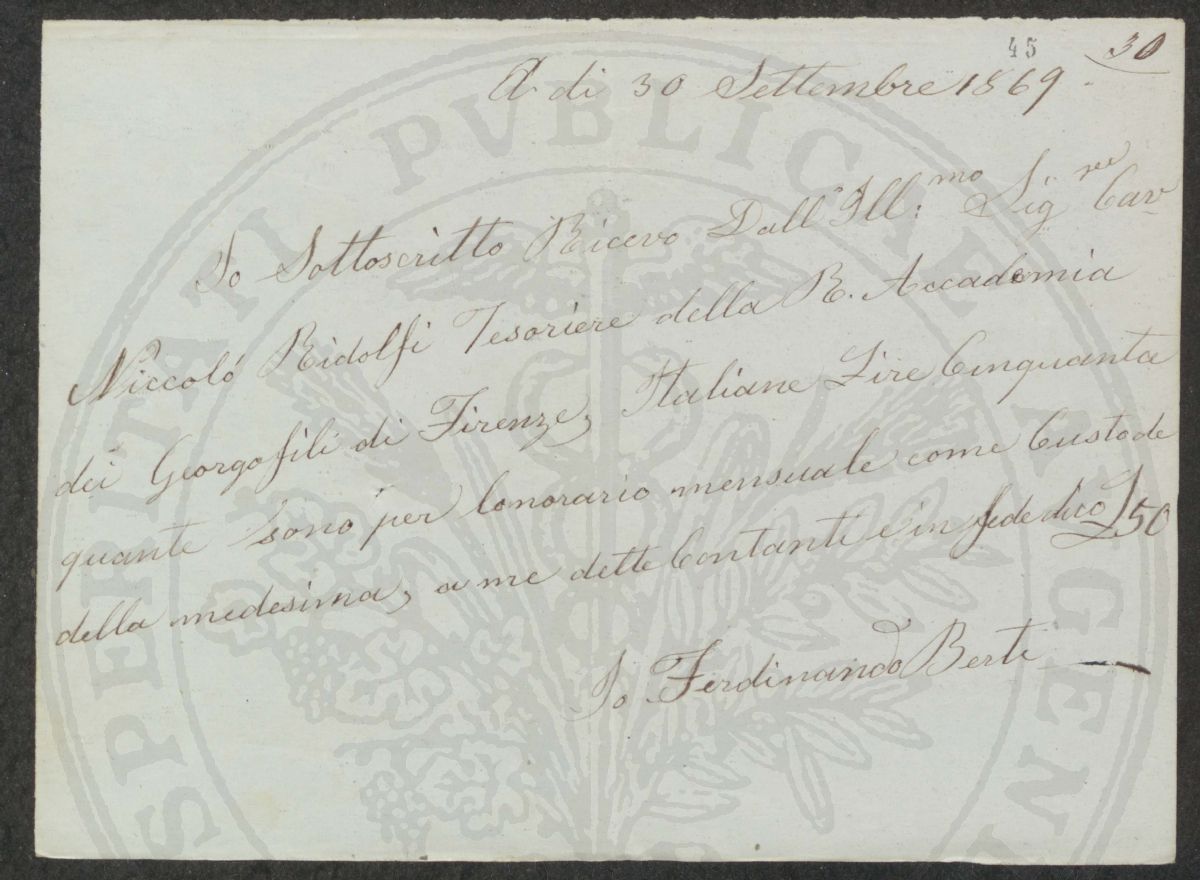 45 30
A di 30 Settembre 1869
Io Sottoscritto Ricevo Dall'Ill:mo Sig.re Cav
Niccoló Ridolfi Tesoriere della R. Accademia
dei Georgofili di Firenze, Italiane Lire Cinquanta
quante sono per lonorario mensuale come Custode
della medesima, a me dette Contanti e in fede dico £50
Io Ferdinando Berti
PROSPERITATI PVBLICAE AVGEN